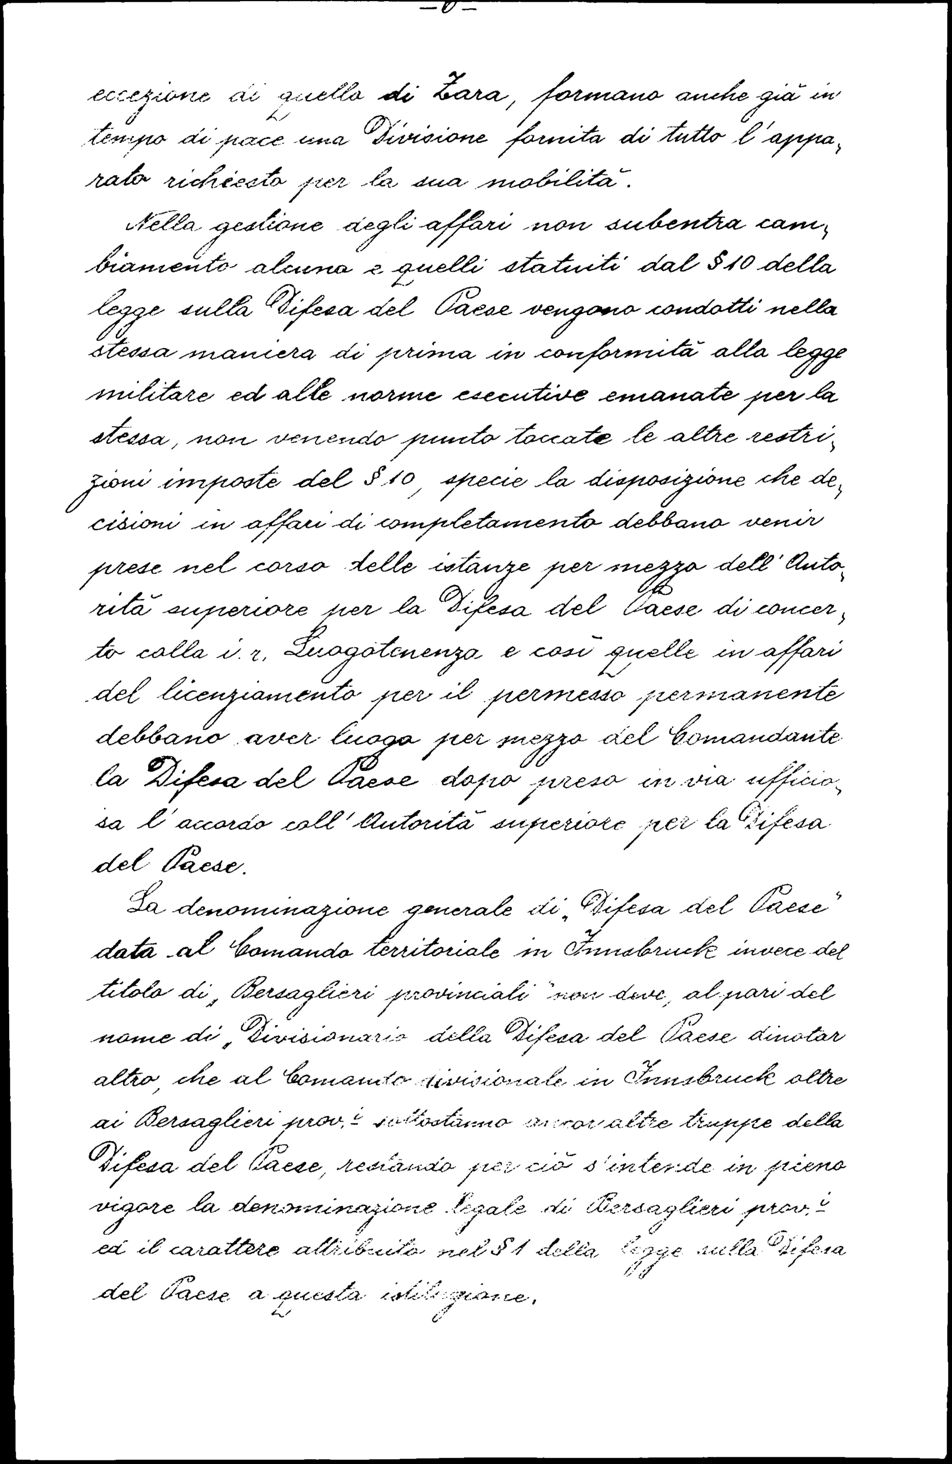 eccezione di quello di Zara, formano anche già in
tempo di pace una Divisione fornita di tutto l'appa,
rato richiesto per la sua mobilità.
Nella gestione degli affari non subentra cam,
biamento alcuno e quelli statuiti dal § 10 della
legge sulla Difesa del Paese vengono condotti nella
stessa maniera di prima in conformità alla legge
militare ed alle norme esecutive emanate per la
stessa, non venendo punto toccate le altre restri,
zioni imposte del § 10, specie la disposizione che de,
cisioni in affari di completamento debbano venir
prese nel corso delle istanze per mezzo dell'Auto,
rità superiore per la Difesa del Paese di concer,
to colla i. r. Luogotenenza e così quelle in affari
del licenziamento per il permesso permanente
debbano aver luogo per mezzo del Comandante
la Difesa del Paese dopo preso in via ufficio,
sa l'accordo coll'Autorità superiore per la Difesa
del Paese.
La denominazione generale di „Difesa del Paese"
data al Comando territoriale in Innsbruck invece del
titolo di „Bersaglieri provinciali" non deve, al pari del
nome di „Divisionario della Difesa del Paese dinotar
altro, che al Comando divisionale in Innsbruck oltre
ai Bersaglieri prov.i sottostanno ancor altre truppe della
Difesa del Paese, restando per ciò s'intende in pieno
vigore la denominazione legale di Bersaglieri prov.i
ed il carattere attribuito nel § 1 della legge sulla Difesa
del Paese a questa istituzione.